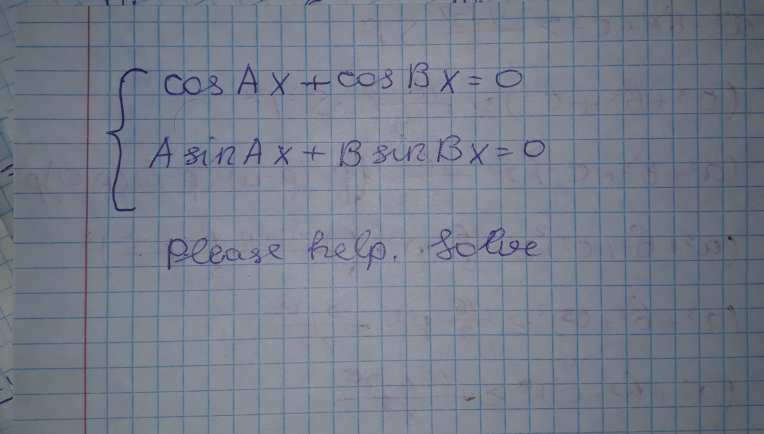 cos A x + cos B x = 0
A sin A x + B sin B x = 0
please help. Solve